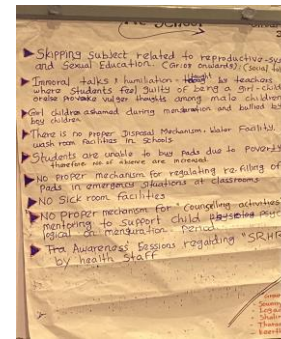 School
Skipping Subject related to reproductive-sys
and Sexual Education. (Gr:09 onwards) (Social
Immoral talks & humiliation by teachers,
where Students feel guilty of being a girl-child
orelse provoke vulger thoughts among male children
Girl children ashamed during menstruation and bullied by
boy children.
There is no proper Disposal Mechanism, Water Facility,
wash room facilities in Schools
Students are unable to buy pads due to Poverty
therefore No of absence are increased.
No proper mechanism for regulating re-filling of
Pads in emergency situations at classrooms
NO Sick room facilities
No Proper mechanism for "Counselling activities"
mentoring to support child psyc
logical on menstruation period
Awareness Sessions regarding "SRHR
by health Staff